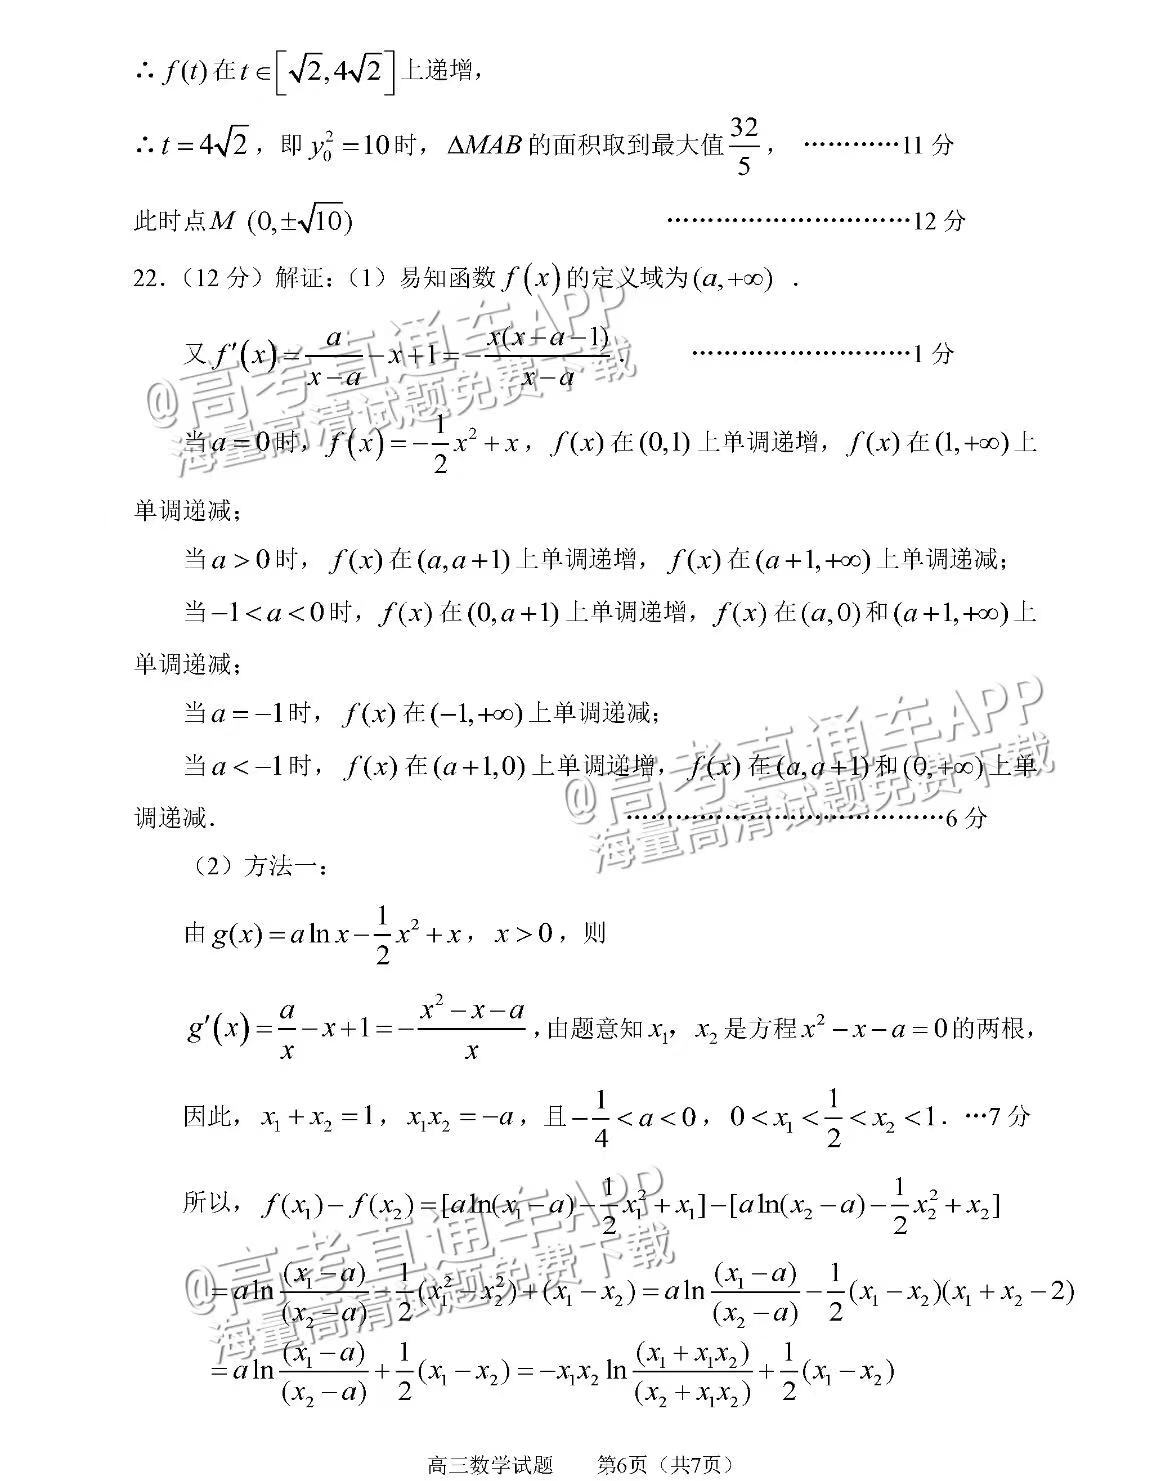 ∴ f(t)在t∈[√2,4√2]上递增，
∴ t=4√2，即 y₀²=10时，ΔMAB的面积取到最大值32/5， …………11 分
此时点M (0,±√10) …………………………12 分
22.（12 分）解证：（1）易知函数 f(x)的定义域为(a,+∞) .
又 f′(x)=a/(x−a)−x+1=−x(x−a−1)/(x−a). ………………………1 分
当a=0时，f(x)=−1/2x²+x，f(x)在(0,1)上单调递增，f(x)在(1,+∞)上
单调递减；
当a>0时，f(x)在(a,a+1)上单调递增，f(x)在(a+1,+∞)上单调递减；
当−1<a<0时，f(x)在(0,a+1)上单调递增，f(x)在(a,0)和(a+1,+∞)上
单调递减；
当a=−1时，f(x)在(−1,+∞)上单调递减；
当a<−1时，f(x)在(a+1,0)上单调递增，f(x)在(a,a+1)和(0,+∞)上单
调递减． …………………………………6 分
（2）方法一：
由g(x)=alnx−1/2x²+x，x>0，则
g′(x)=a/x−x+1=−(x²−x−a)/x，由题意知x₁，x₂是方程x²−x−a=0的两根，
因此，x₁+x₂=1，x₁x₂=−a，且−1/4<a<0，0<x₁<1/2<x₂<1．…7 分
所以，f(x₁)−f(x₂)=[aln(x₁−a)−1/2x₁²+x₁]−[aln(x₂−a)−1/2x₂²+x₂]
=aln(x₁−a)/(x₂−a)−1/2(x₁²−x₂²)+(x₁−x₂)=aln(x₁−a)/(x₂−a)−1/2(x₁−x₂)(x₁+x₂−2)
=aln(x₁−a)/(x₂−a)+1/2(x₁−x₂)=−x₁x₂ln(x₁+x₁x₂)/(x₂+x₁x₂)+1/2(x₁−x₂)
高三数学试题 第6页（共7页）
@高考直通车APP
海量高清试题免费下载
@高考直通车APP
海量高清试题免费下载
@高考直通车APP
海量高清试题免费下载